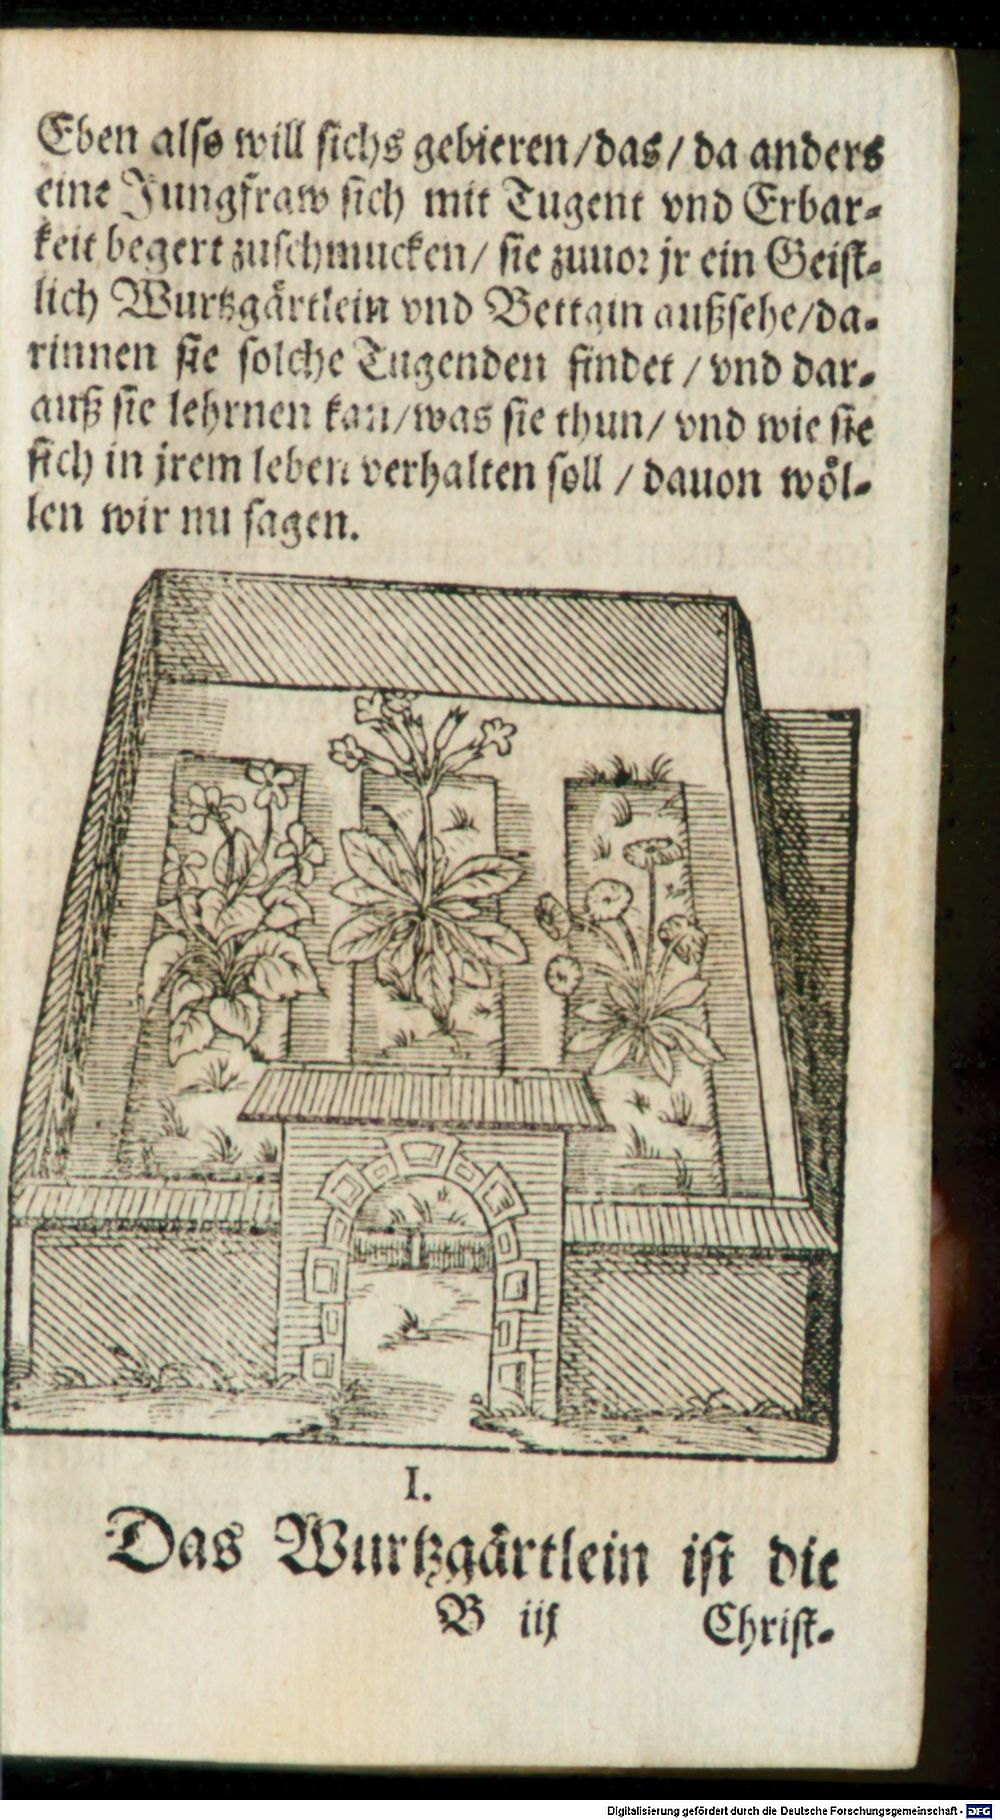 Eben also will sichs gebieren/das/ da anders
eine Jungfraw sich mit Tugent vnd Erbar-
keit begert zuschmucken/ sie zuuor jr ein Geist-
lich Wurtzgärtlein vnd Bettain außsehe/da-
rinnen sie solche Tugenden findet / vnd dar-
auß sie lehrnen kan/was sie thun/ vnd wie sie
sich in jrem leben verhalten soll / dauon wöl-
len wir nu sagen.
I.
Das Wurtzgärtlein ist die
B iij Christ-
Digitalisierung gefördert durch die Deutsche Forschungsgemeinschaft - DFG